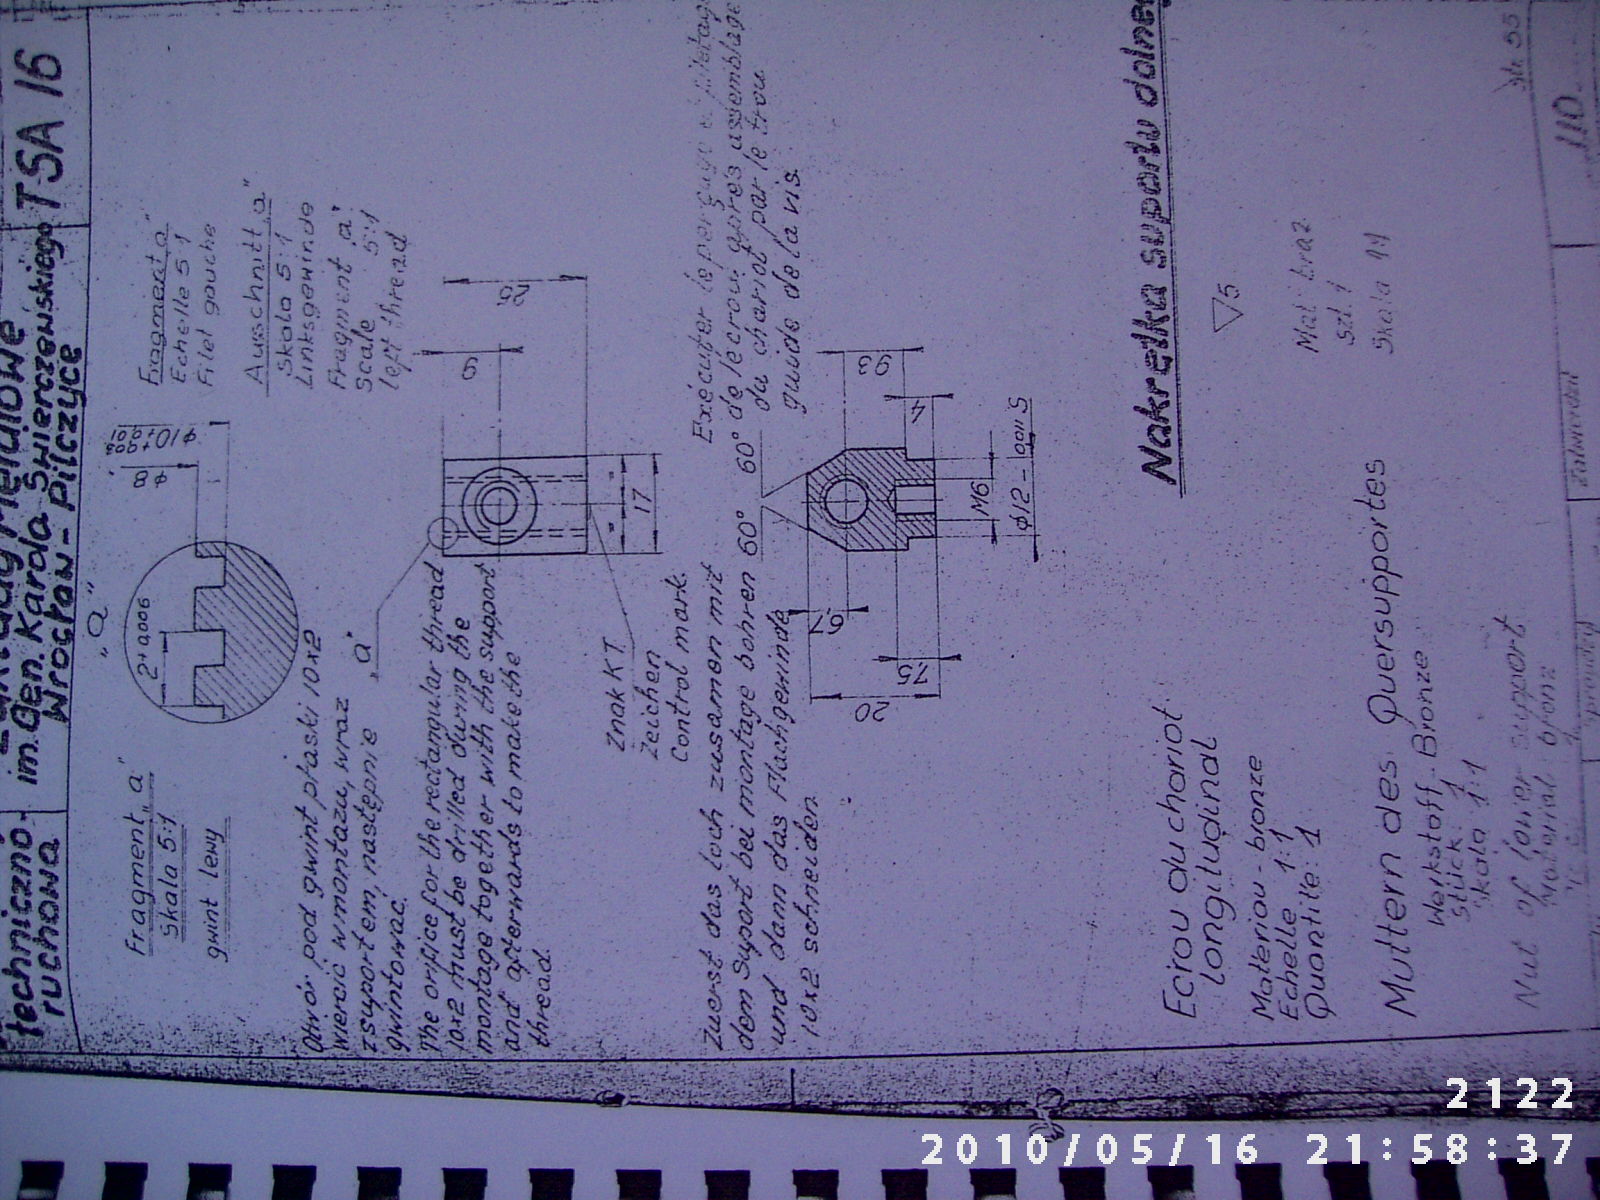 techniczno-
ruchowa
im. Gen. Karola Świerczewskiego
Wrocław - Pilczyce
TSA 16
Fragment „a"
Skala 5:1
gwint lewy
„a"
2+0,006
φ8
Fragment a"
Echelle 5:1
Filet gauche
Ausschnitt „a"
Skala 5:1
Linksgewinde
Fragment „a"
Scale 5:1
left thread
Otwór pod gwint płaski 10x2
wiercić w montażu, wraz
z suportem, następnie
gwintować.
„a"
The orifice for the rectangular thread
10x2 must be drilled during the
montage together with the support
and afterwards to make the
thread.
9
25
17
Znak KT
Zeichen
Control mark.
Zuerst das loch zusamen mit
dem Suport bei montage bohren
und dann das Flachgewinde
10x2 schneiden
Exécuter le perçage
de l'écrou après assemblage
du chariot par le trou
guide de la vis.
60° 60°
9,3
4
6,7
7,5
20
M6
Nakrętka suportu
▽5
Mat. brąz
szt. 1
Skala 1:1
Ecrou du chariot
longiludinal
Materiau - bronze
Echelle 1:1
Quantite: 1
Muttern des Quersupportes
Werkstoff - Bronze
Stück 1
Skala 1:1
Nut of lower support
Material bronz
Zatwierdził
110
Str. 55
2122
2010/05/16 21:58:37